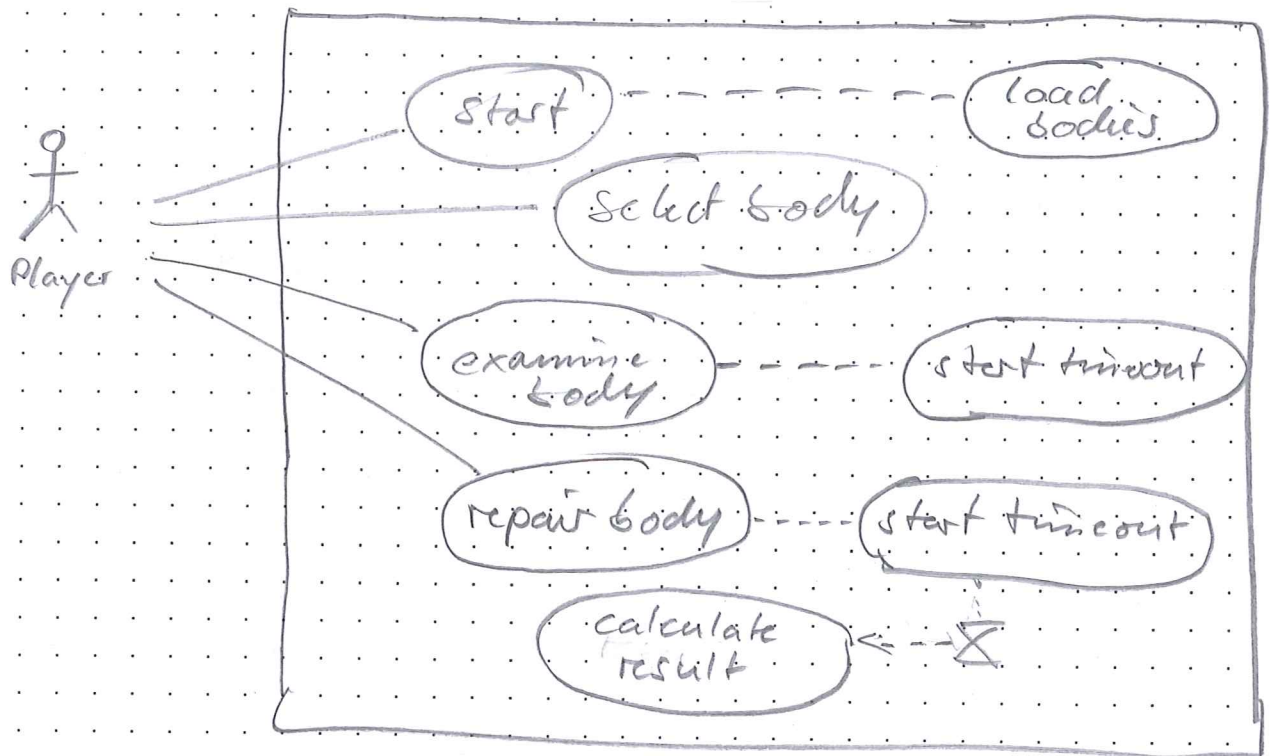 start
load
bodies
select body
Player
examine
body
start timeout
repair body
start timeout
calculate
result